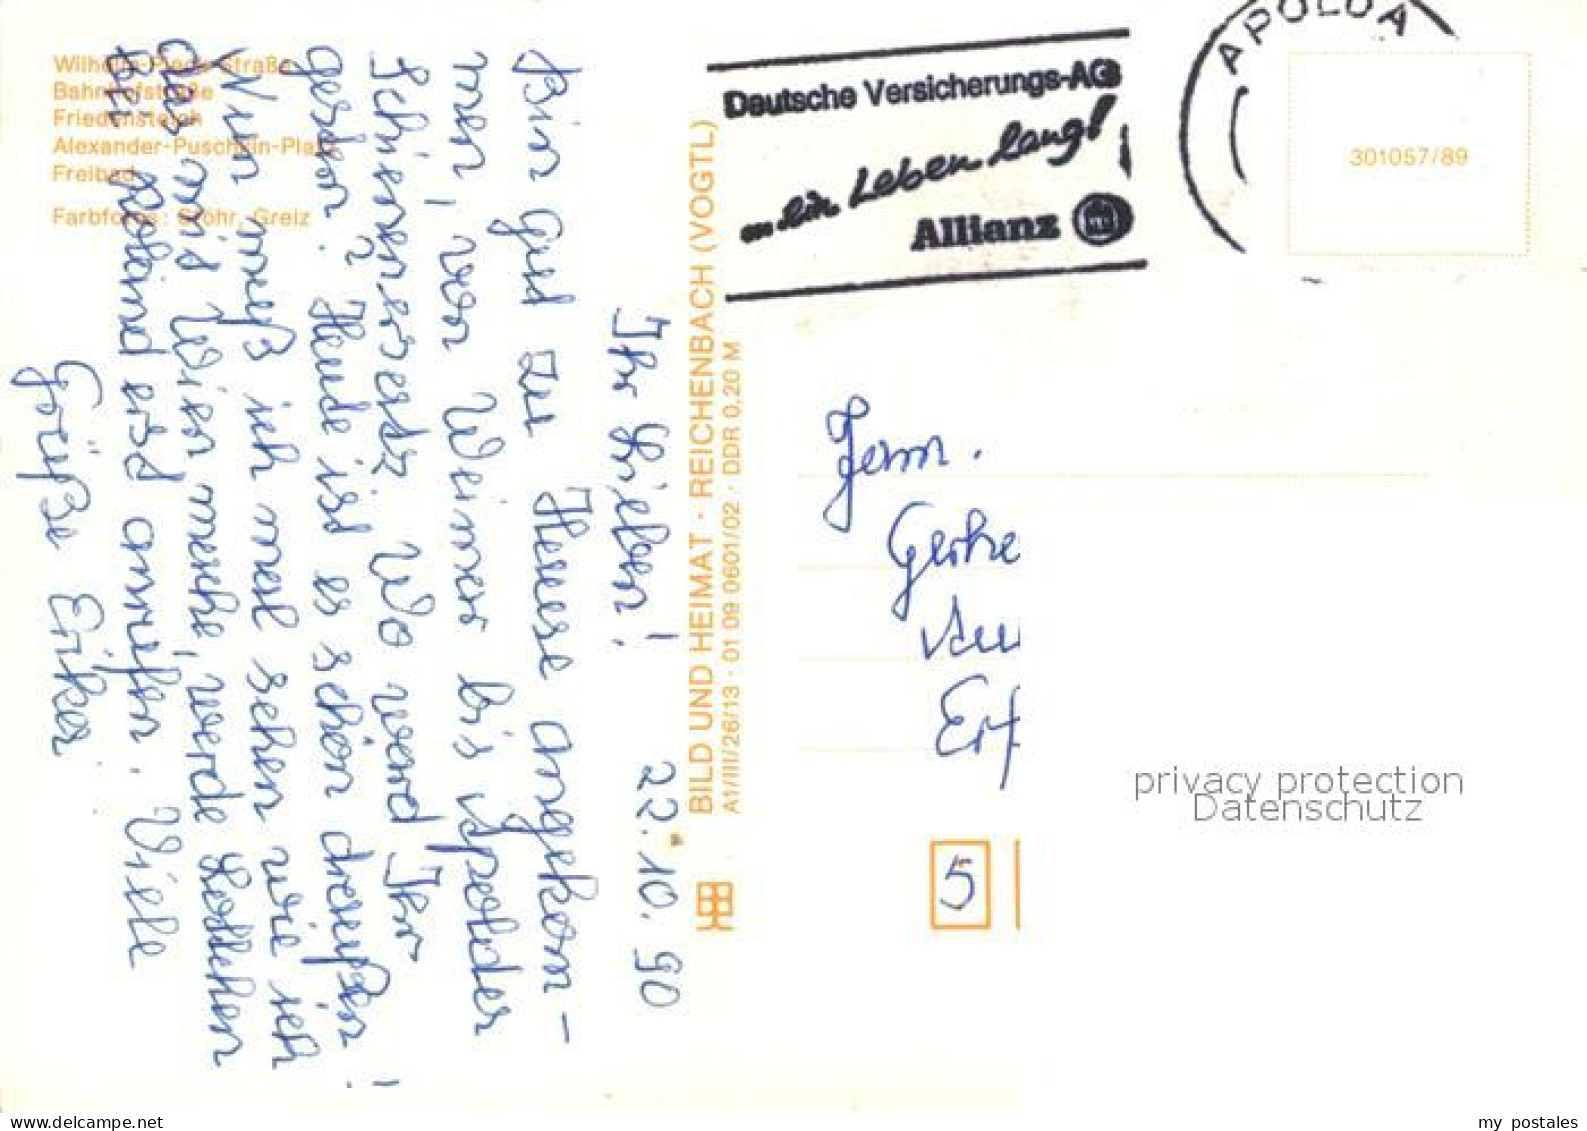 Wilhelm-Pieck-Straße
Bahnhofstraße
Friedensteich
Alexander-Puschkin-Platz
Freibad
Farbfotos: Stohr, Greiz
BILD UND HEIMAT · REICHENBACH (VOGTL)
A1/III/26/13 · 01 09 0601/02 · DDR 0,20 M
22.10.90
Ihr Lieben!
Bin gut zu Hause angekom-
men, von Weimar bis Apolda
Schienenersatz. Wo ward Ihr
gestern? Heute ist es schön draußen!
Nun muß ich mal sehen wie ich
das mit Wien mache, werde
bei Roland erst anrufen. Viele
Grüße Erika
Deutsche Versicherungs-AG
... ein Leben lang!
Allianz
APOLDA
301057/89
Fam.
Gerhe
Erf
5
privacy protection
Datenschutz
my postales